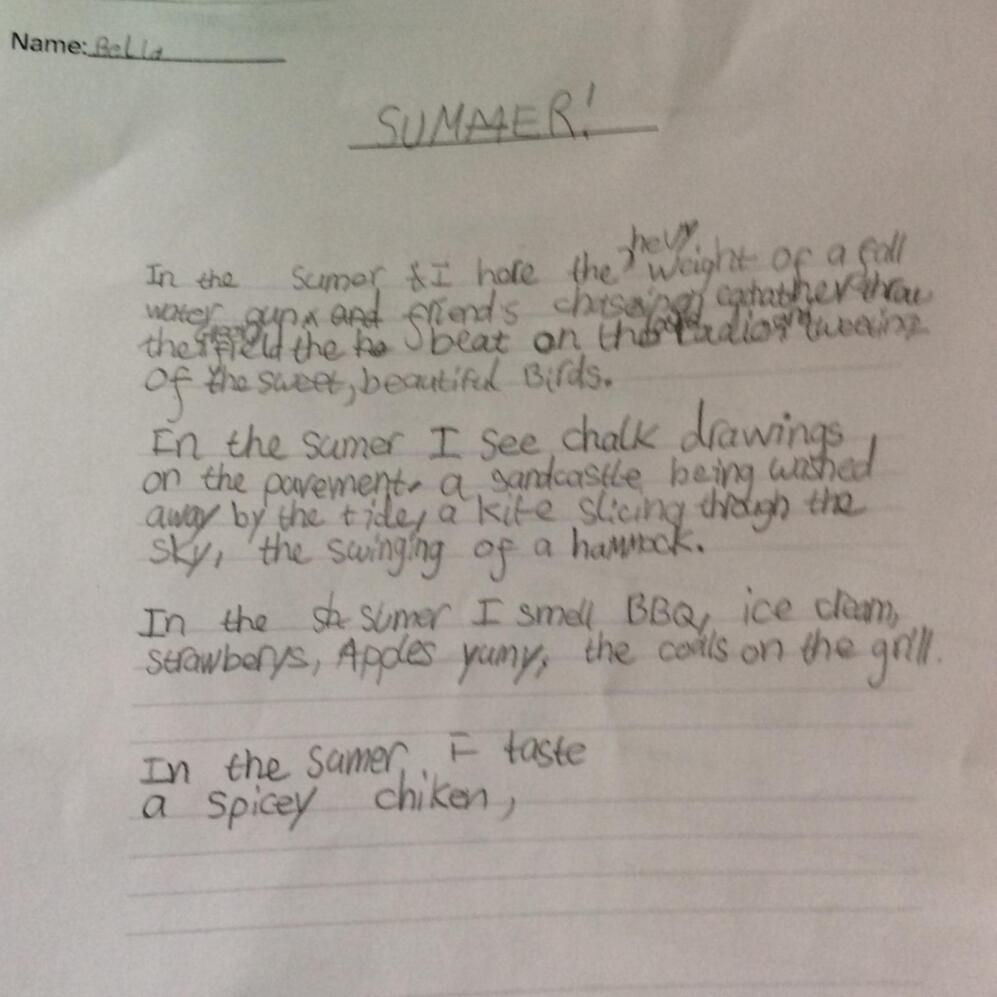 Name: Bella
SUMMER!
hevy
In the Sumer I hore the weight of a fall
water gun, and friends chaseing eachather thrau
the field the beat on the radio tweeing
of the sweet, beautiful Birds.
In the sumer I see chalk drawings,
on the pavement, a sandcastle being washed
away by the tide, a kite slicing through the
sky, the swinging of a hammock.
In the sh sumer I smell BBQ, ice cream,
strawberys, Apples yumy, the coals on the grill.
In the sumer I taste
a spicey chiken,